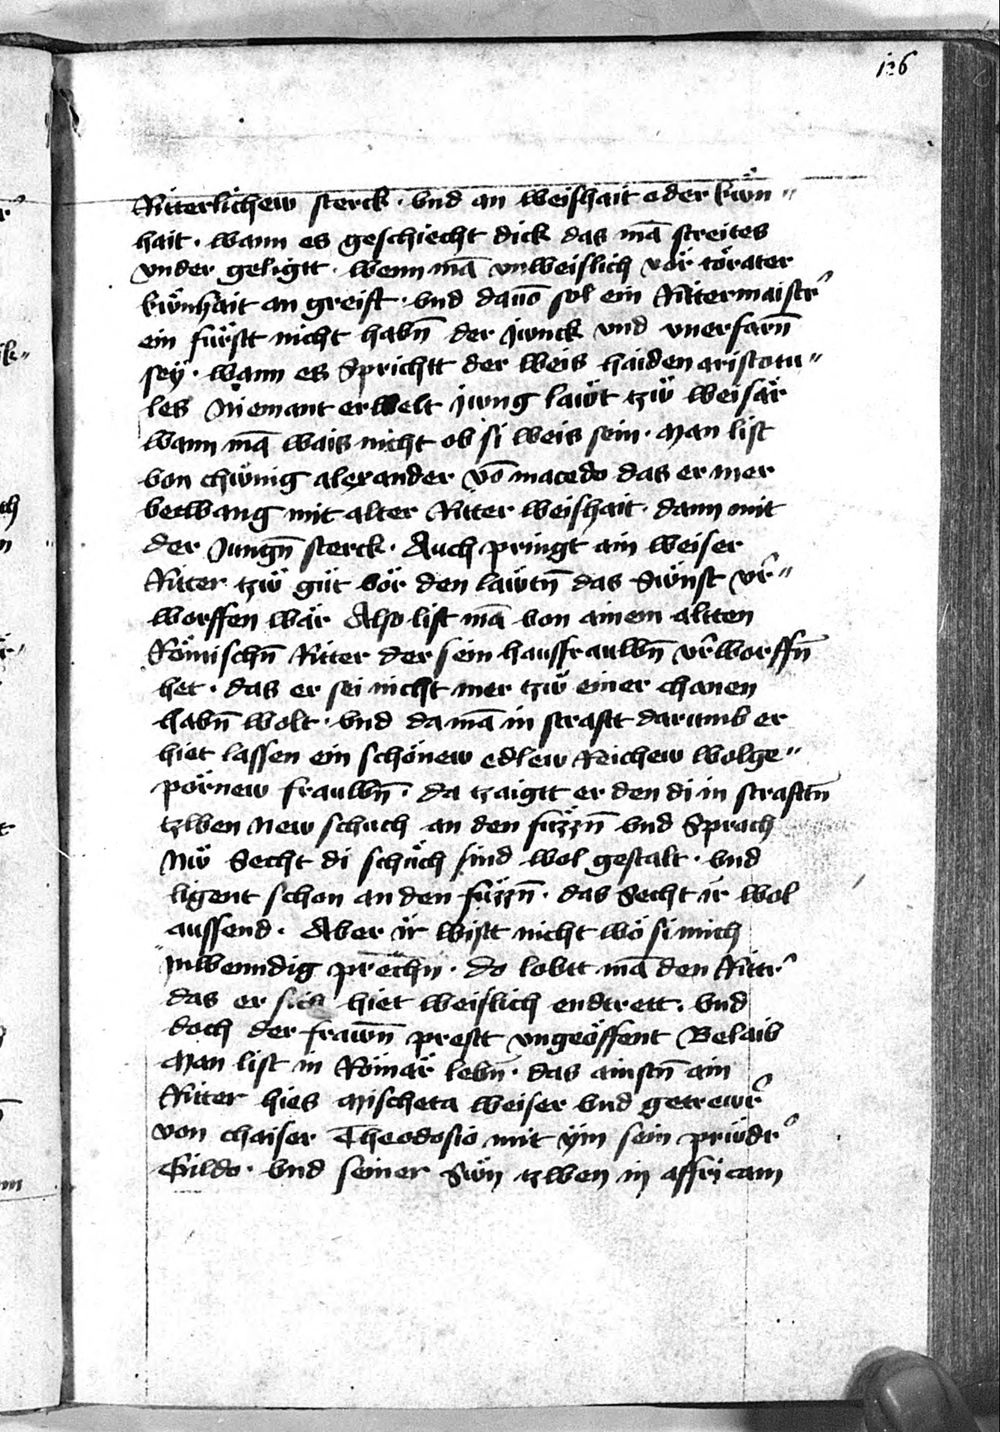 126
Ritterlichew sterck · vnd an weishait oder kwͤn〃
hait · wann es geschiecht dick das mā streites
vnder geligtt · wenn mā vnweislich vör törater
kẅnhait an greift · vnd dauō sol ein Rittermaistr̾
ein fürstt nicht habn̄ der Jwnck vnd vnerfarn̄
seÿ · wann es Sprichtt der weis haiden aristotu〃
les Niemant erwelt Jwng lawͤt tzẅ weisär
wann mā wais nicht ob si weis sein · Man list
von chẅnig alexander vō macedo das er mer
betwang mit alter Ritter weishait · dann mit
der Jungn̄ sterck · Auch pringt ain weiser
Ritter tzẅ güt vör den lawͤtn̄ das Swͤnst vr̾〃
worffen wär Also list mā von ainem altten
Römischn̄ Ritter der sein hausfrauwn̄ vr̾worffn̄
het · das er sei nicht mer tzẅ einer chanen
habn̄ wolt · vnd da mā in straftt darumb er
hiet lassen ein schönew edlew Reichew wolge〃
pörnew frauwn̄ · da tzaigtt er den di in strafttn̄
tzwen New schuch an den füzzn̄ vnd Sprach
Nẅ Secht di schüch sind wol gestalt · vnd
ligent schon an den füzzn̄ · das Secht ir wol
aussend · Aber ir wistt nicht wö si mich
Inwenndig prechn̄ · do lobtt mā den Rittr̾
das er sich hiet weislich endtrett · vnd
doch der frawn̄ prestt vngeöffent Belaib
Man list in Römär lebn̄ · das ainstn̄ ain
Ritter hies Mischeta weiser vnd getrewr̾
von chaiser Theodosio mit ÿm sein prüdr̾
Gildo · vnd seiner Sẅn tzwen in affricam